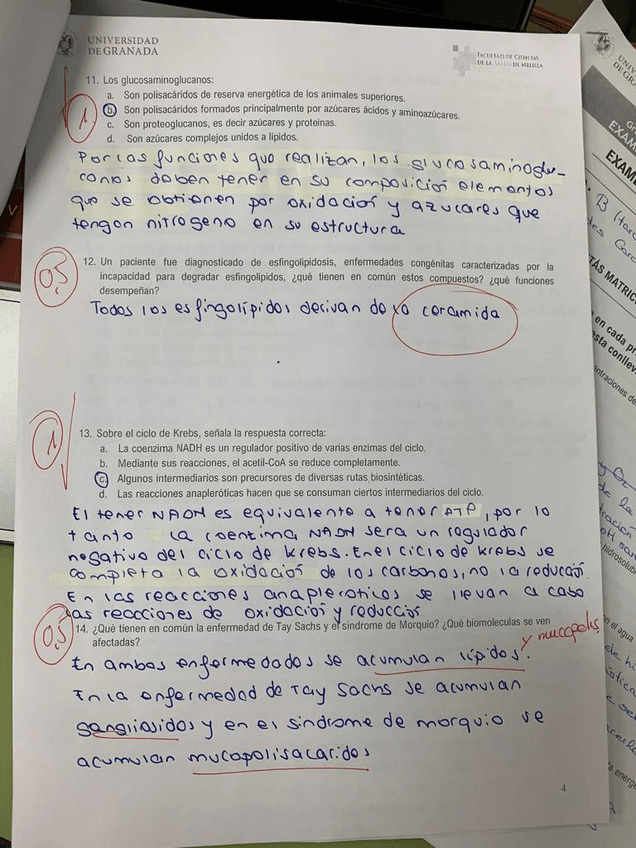 UNIVERSIDAD
DE GRANADA
FACULTAD DE CIENCIAS
DE LA SALUD DE MELILLA
11. Los glucosaminoglucanos:
a. Son polisacáridos de reserva energética de los animales superiores.
b. Son polisacáridos formados principalmente por azúcares ácidos y aminoazúcares.
c. Son proteoglucanos, es decir azúcares y proteinas.
d. Son azúcares complejos unidos a lípidos.
1
Por las funciones que realizan, los glucosaminoglu-
canos deben tener en su composición elementos
que se obtienen por oxidación y azucares que
tengan nitrogeno en su estructura
0,5
12. Un paciente fue diagnosticado de esfingolipidosis, enfermedades congénitas caracterizadas por la
incapacidad para degradar esfingolipidos, ¿qué tienen en común estos compuestos? ¿qué funciones
desempeñan?
Todos los esfingolípidos derivan de la ceramida
1
13. Sobre el ciclo de Krebs, señala la respuesta correcta:
a. La coenzima NADH es un regulador positivo de varias enzimas del ciclo.
b. Mediante sus reacciones, el acetil-CoA se reduce completamente.
c. Algunos intermediarios son precursores de diversas rutas biosintéticas.
d. Las reacciones anapleróticas hacen que se consuman ciertos intermedios del ciclo.
El tener NADH es equivalente a tener ATP, por lo
tanto la coentima NADH sera un regulador
negativo del ciclo de krebs. En el ciclo de krebs se
completa la oxidación de los carbonos, no la reducción.
En las reacciones anapleroticas se llevan a cabo
las reacciones de oxidación y reducción
0,5
14. ¿Qué tienen en común la enfermedad de Tay Sachs y el síndrome de Morquio? ¿Qué biomoleculas se ven
afectadas?
y mucopolis
En ambas enfermedades se acumulan lípidos.
En la enfermedad de Tay Sachs se acumulan
gangliosidos y en el sindrome de morquio se
acumulan mucopolisacaridos
4
UNIVER
DE GRA
EXAM
EXAM
TAS MATRIC
en cada pr